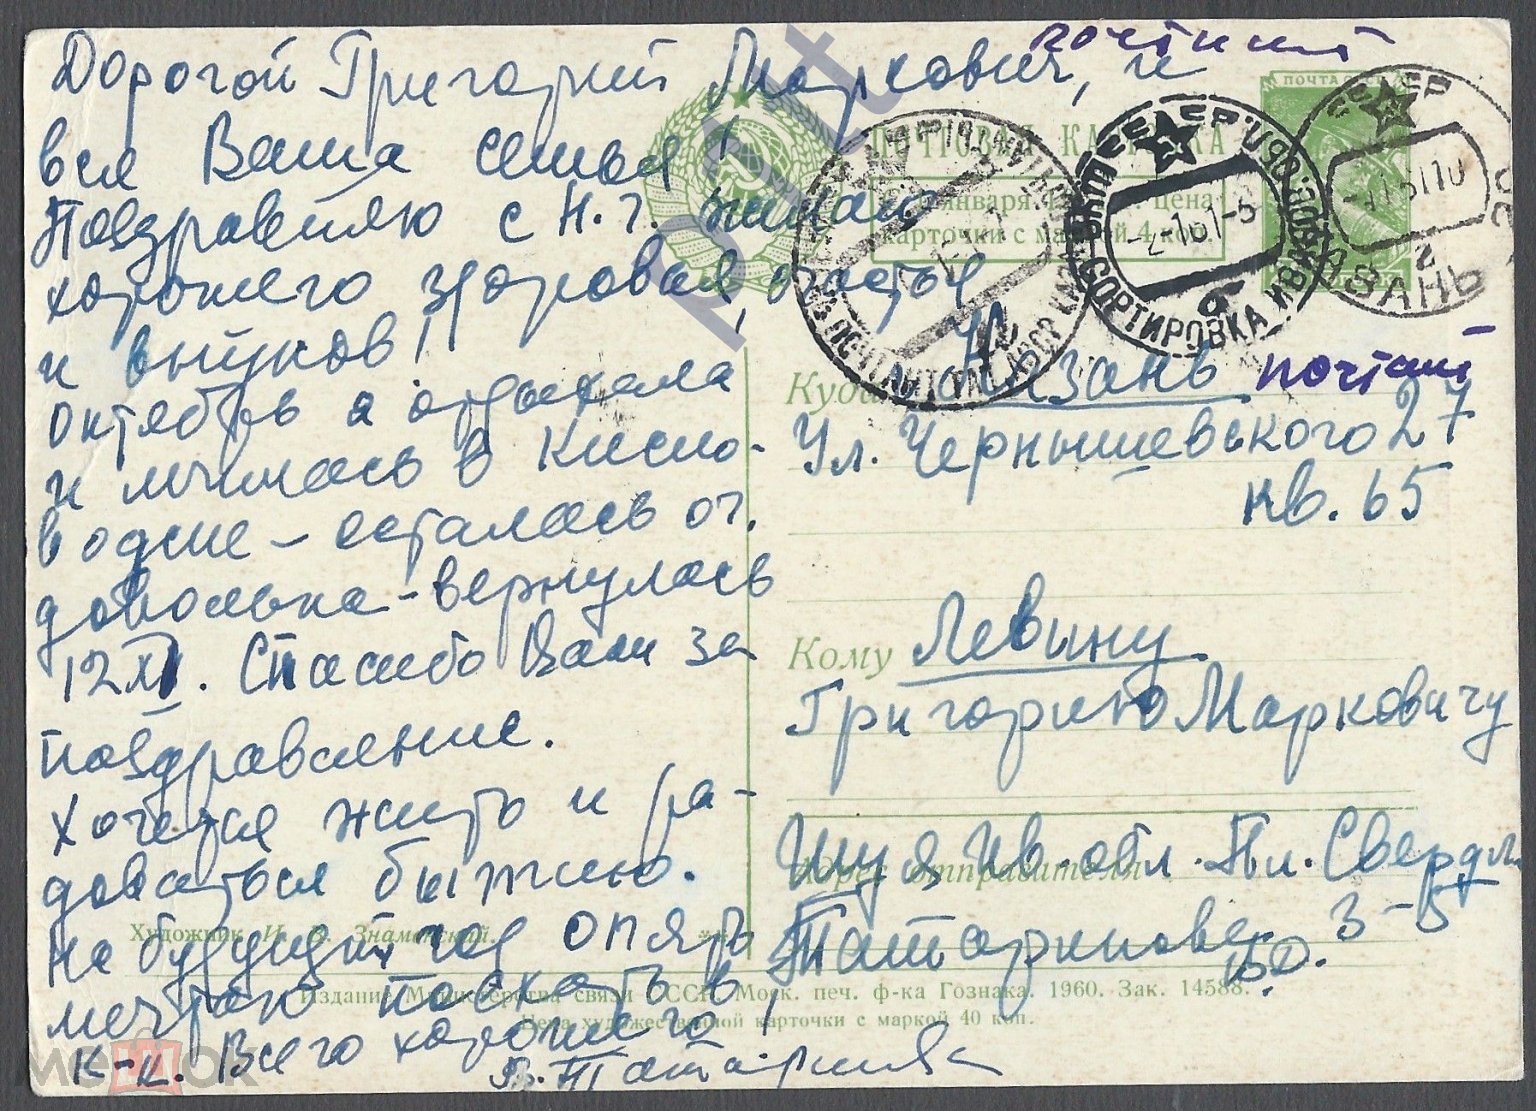 Дорогой Григорий Маркович, и
вся Ваша семья!
Поздравляю с Н.г. желаю
хорошего здоровья, счастья
и внуков!
Октябрь я отдыхала
и лечилась в Кисло-
водске – осталась оч.
довольна – вернулась
12 XI. Спасибо Вам за
поздравление.
Хочется жить и ра-
доваться
На будущий год опять
мечтаю поехать в
К-к. Всего хорошего!
В. Татаринова
ПОЧТОВАЯ КАРТОЧКА
января цена
карточки с маркой 4 коп.
ПОЧТА СССР
Куда Казань
Ул. Чернышевского 27
кв. 65
Кому Левину
Григорию Марковичу
Адрес отправителя
Шуя Ив. обл. Пл. Свердл
3-5
Татариновой
Художник И. В. Знаменский.
Издание Министерства связи СССР. Моск. печ. ф-ка Гознака. 1960. Зак. 14588.
Цена художественной карточки с маркой 40 коп.
СОРТИРОВКА ИВАНОВ. ОБЛ.
КАЗАНЬ
МЕШОК